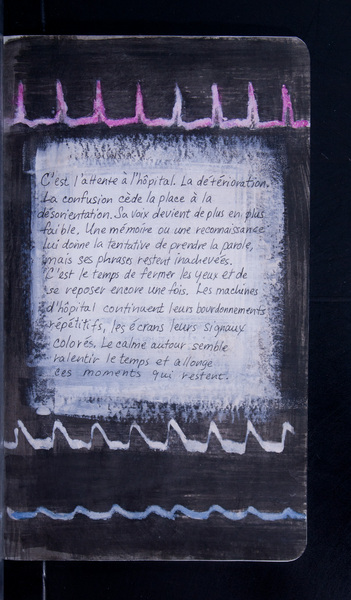 C'est l'attente à l'hôpital. La détérioration.
La confusion cède la place à la
désorientation. Sa voix devient de plus en plus
faible. Une mémoire ou une reconnaissance
lui donne la tentative de prendre la parole,
mais ses phrases restent inachevées.
C'est le temps de fermer les yeux et de
se reposer encore une fois. Les machines
d'hôpital continuent leurs bourdonnements
répétitifs, les écrans leurs signaux
colorés. Le calme autour semble
ralentir le temps et allonge
ces moments qui restent.